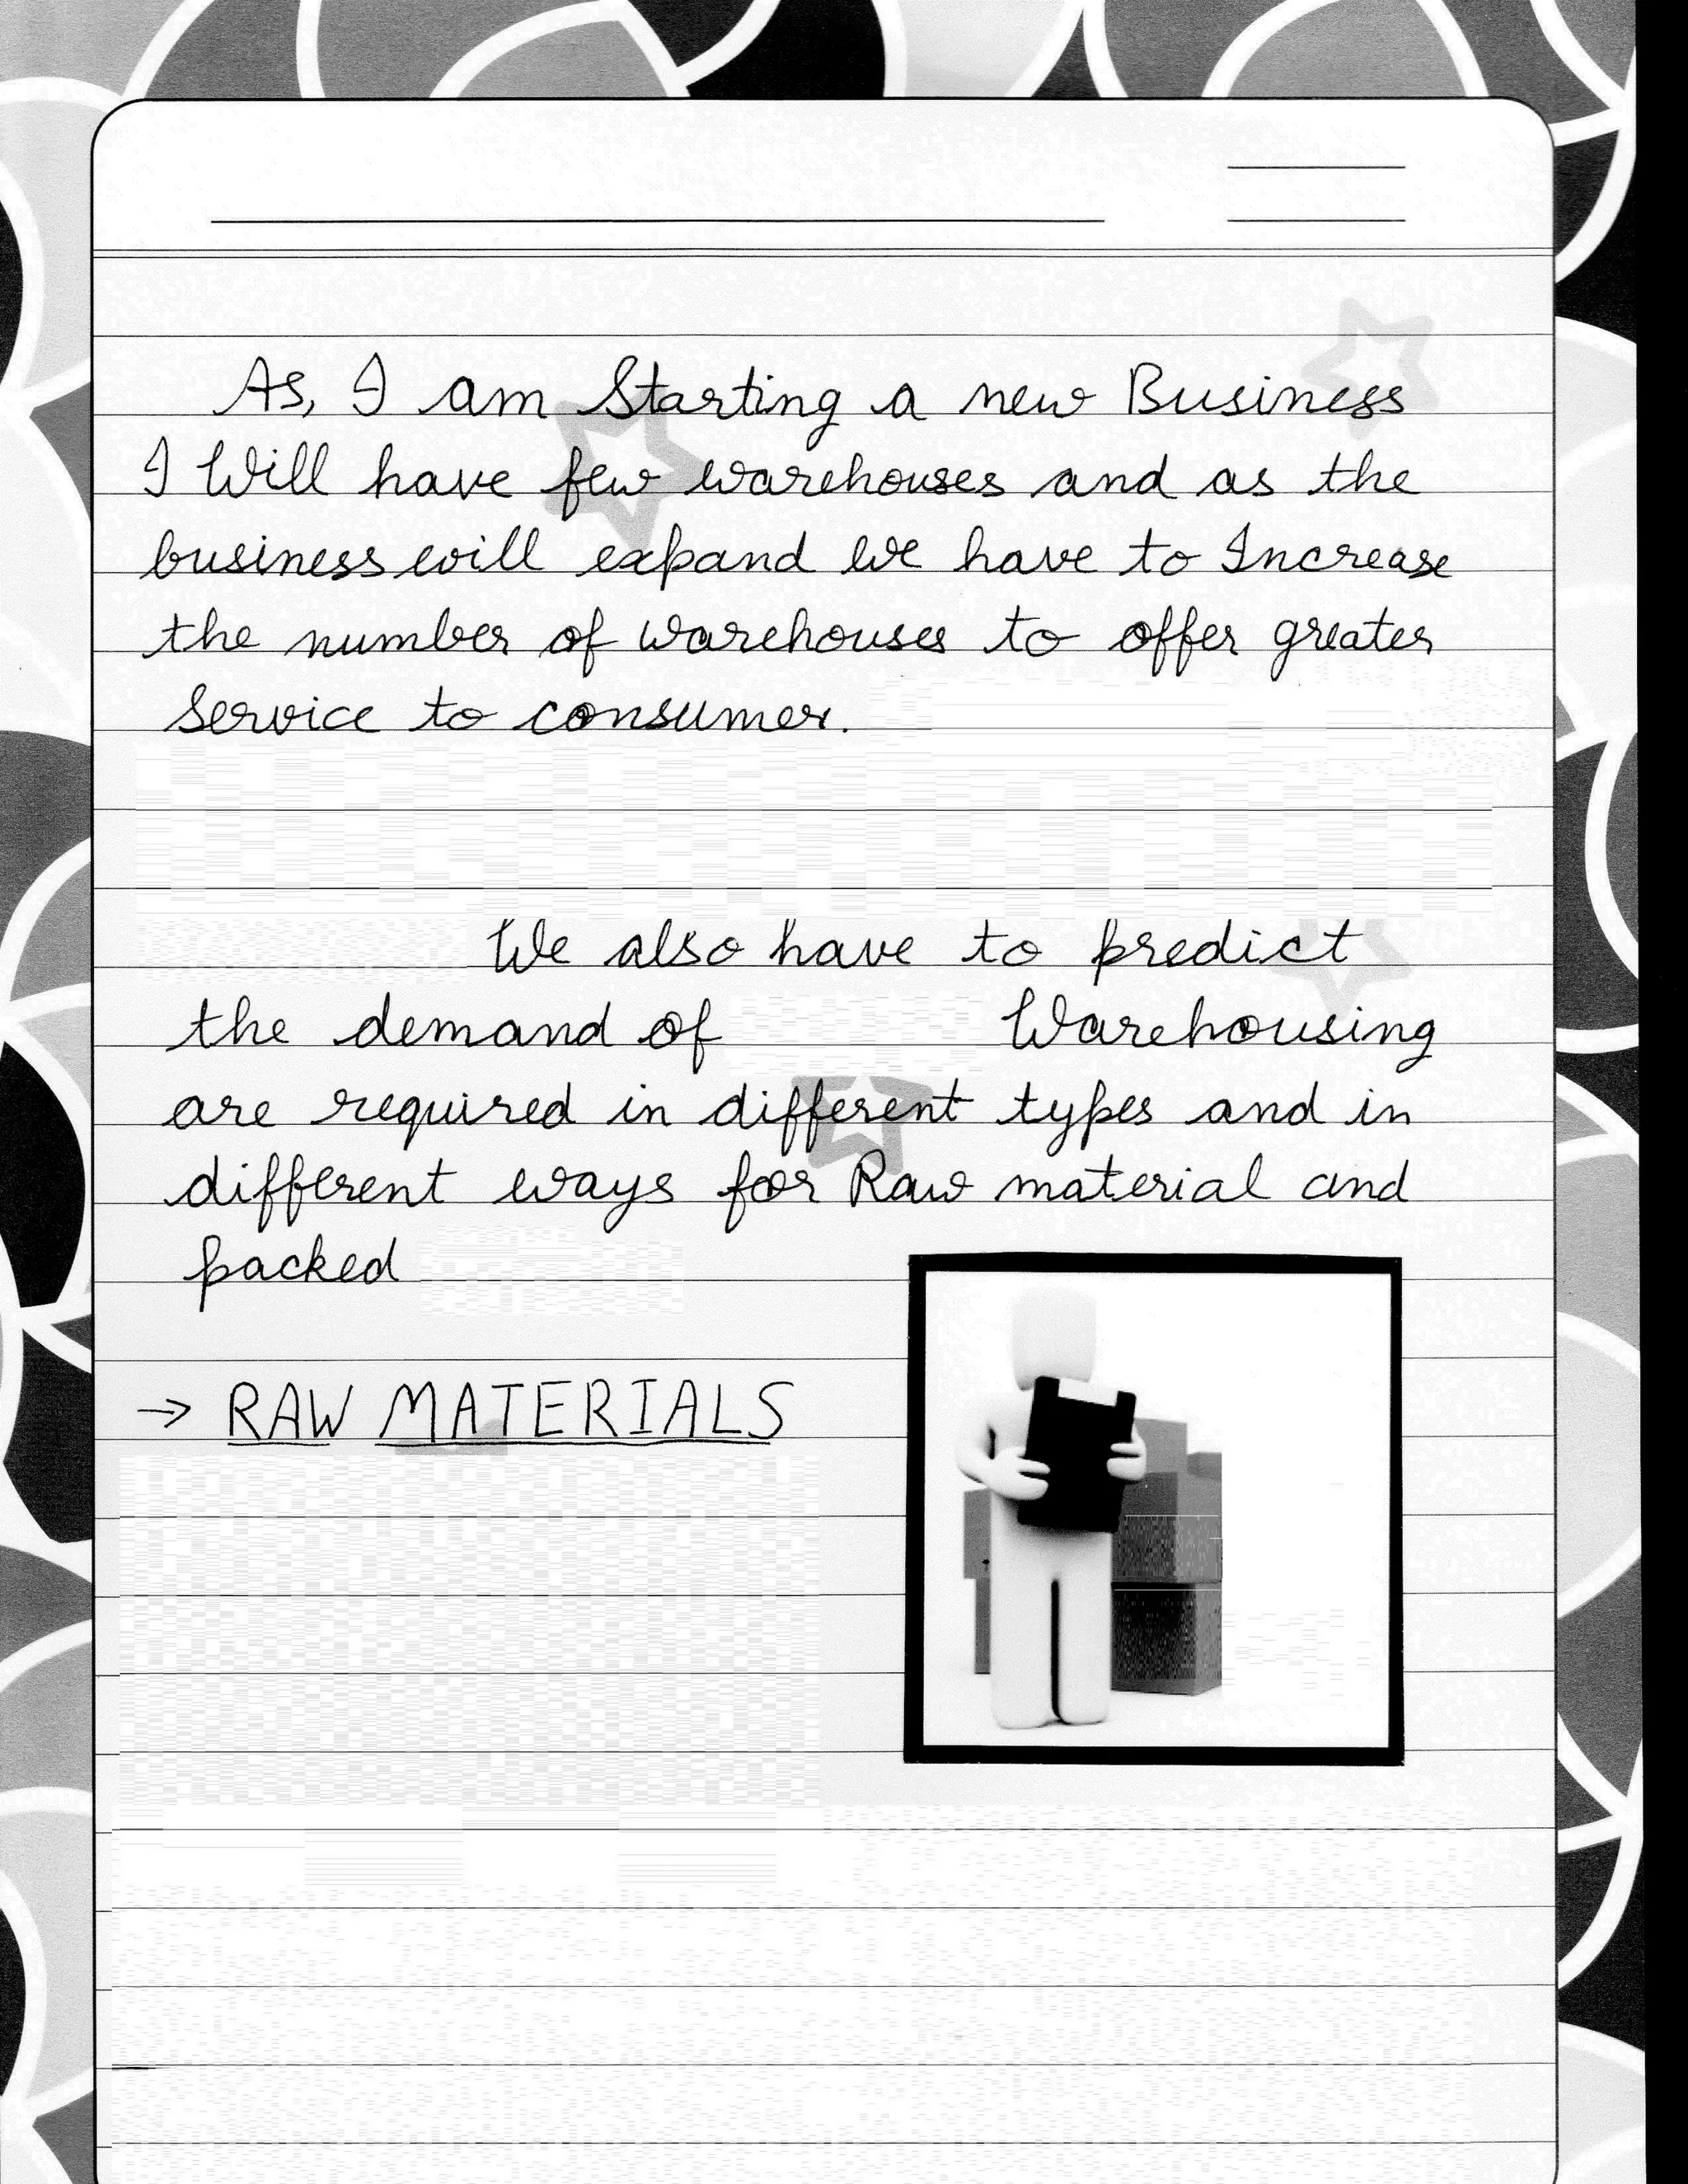 As, I am Starting a new Business
I Will have few warehouses and as the
business will expand We have to Increase
the number of warehouses to offer greater
Service to consumer.
We also have to predict
the demand of Warehousing
are required in different types and in
different ways for Raw material and
packed
→ RAW MATERIALS